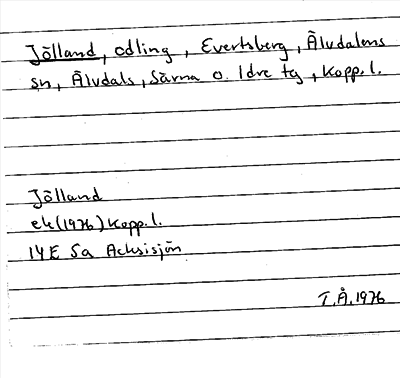 Jölland, odling, Evertsberg, Älvdalens
sn, Älvdals, Särna o. Idre tg, Kopp. l.
Jölland
ek (1976) Kopp. l.
14E 5a Acksisjön
T.Å. 1976